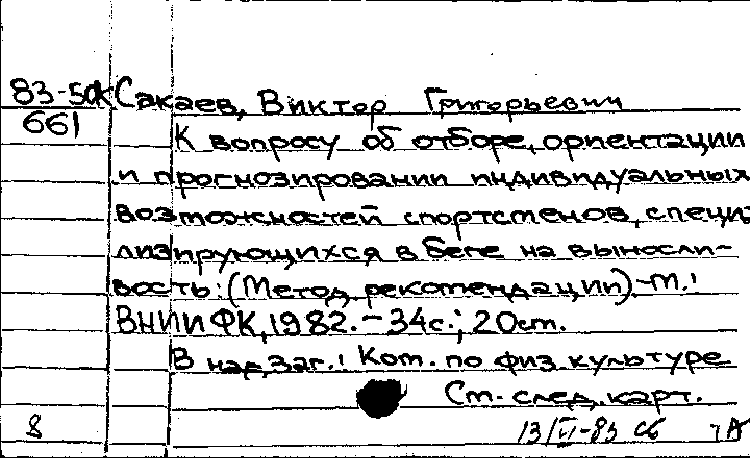 83-5ок Сакаев, Виктор Григорьевич
661
К вопросу об отборе, ориентации
и прогнозировании индивидуальных
возможностей спортсменов, специа
лизирующихся в беге на выносли-
вость: (Метод. рекомендации).-М.:
ВНИИФК, 1982. - 34с.; 20см.
В над.заг.: Ком. по физ. культуре
См. след. карт.
8 13/VI-83 сб